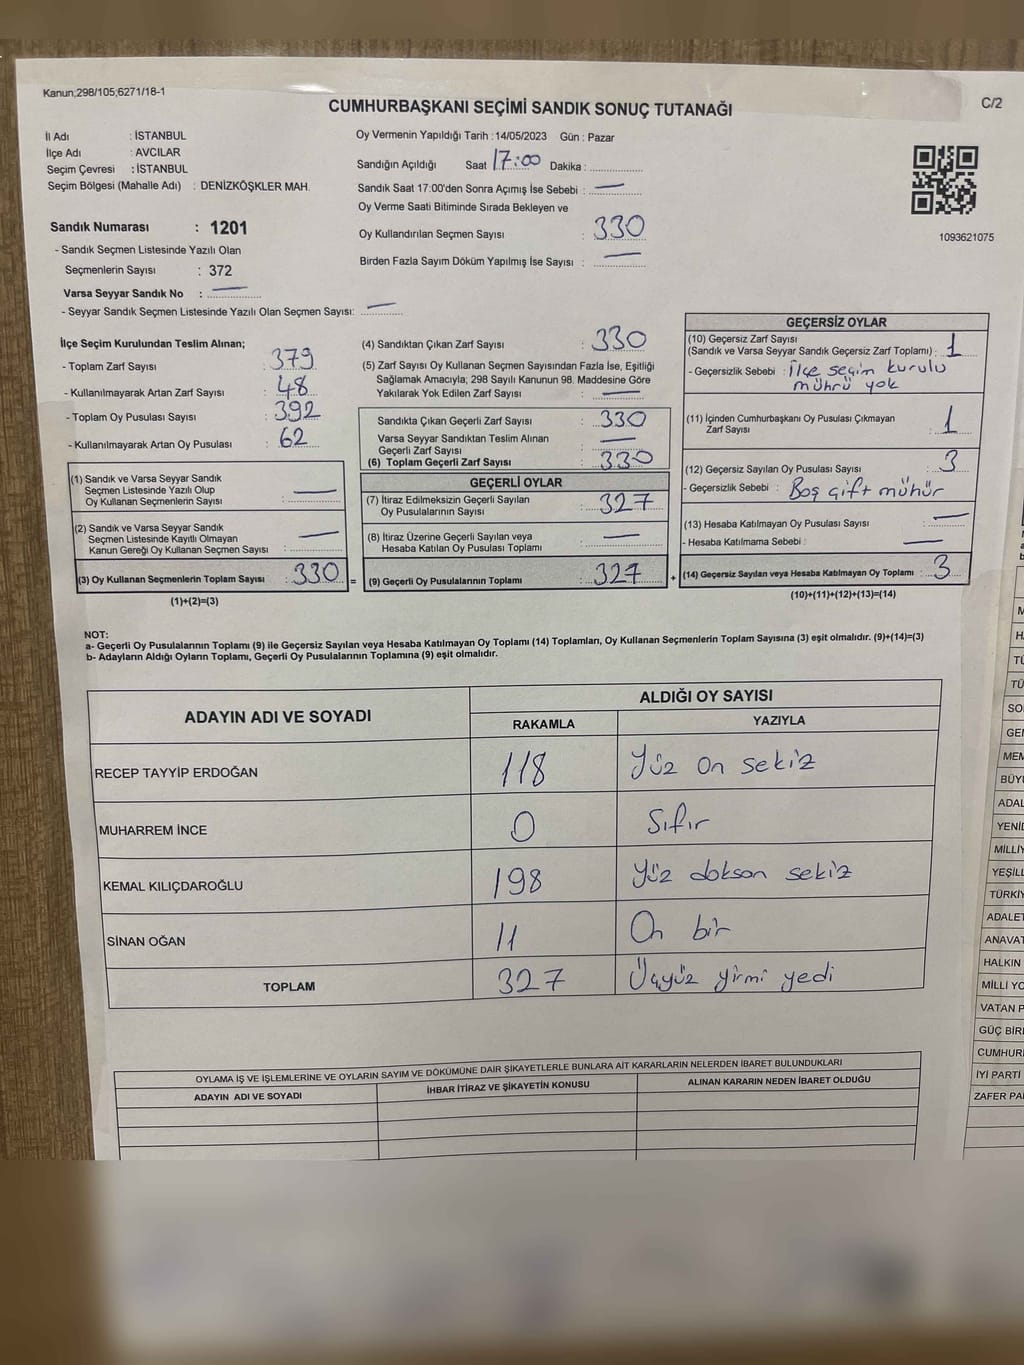 Kanun;298/105;6271/18-1
CUMHURBAŞKANI SEÇİMİ SANDIK SONUÇ TUTANAĞI
C/2
İl Adı : İSTANBUL
İlçe Adı : AVCILAR
Seçim Çevresi : İSTANBUL
Seçim Bölgesi (Mahalle Adı) : DENİZKÖŞKLER MAH.
Oy Vermenin Yapıldığı Tarih : 14/05/2023 Gün : Pazar
Sandığın Açıldığı Saat 17:00 Dakika :
Sandık Saat 17:00'den Sonra Açımış İse Sebebi : —
Oy Verme Saati Bitiminde Sırada Bekleyen ve
Oy Kullandırılan Seçmen Sayısı : 330
Birden Fazla Sayım Döküm Yapılmış İse Sayısı : —
1093621075
Sandık Numarası : 1201
- Sandık Seçmen Listesinde Yazılı Olan
Seçmenlerin Sayısı : 372
Varsa Seyyar Sandık No : —
- Seyyar Sandık Seçmen Listesinde Yazılı Olan Seçmen Sayısı: —
İlçe Seçim Kurulundan Teslim Alınan;
- Toplam Zarf Sayısı : 379
- Kullanılmayarak Artan Zarf Sayısı : 48
- Toplam Oy Pusulası Sayısı : 392
- Kullanılmayarak Artan Oy Pusulası : 62
(1) Sandık ve Varsa Seyyar Sandık
Seçmen Listesinde Yazılı Olup
Oy Kullanan Seçmenlerin Sayısı : —
(2) Sandık ve Varsa Seyyar Sandık
Seçmen Listesinde Kayıtlı Olmayan
Kanun Gereği Oy Kullanan Seçmen Sayısı : —
(3) Oy Kullanan Seçmenlerin Toplam Sayısı : 330 =
(1)+(2)=(3)
(4) Sandıktan Çıkan Zarf Sayısı : 330
(5) Zarf Sayısı Oy Kullanan Seçmen Sayısından Fazla İse, Eşitliği
Sağlamak Amacıyla; 298 Sayılı Kanunun 98. Maddesine Göre
Yakılarak Yok Edilen Zarf Sayısı : —
Sandıkta Çıkan Geçerli Zarf Sayısı : 330
Varsa Seyyar Sandıktan Teslim Alınan
Geçerli Zarf Sayısı : —
(6) Toplam Geçerli Zarf Sayısı : 330
GEÇERLİ OYLAR
(7) İtiraz Edilmeksizin Geçerli Sayılan
Oy Pusulalarının Sayısı : 327
(8) İtiraz Üzerine Geçerli Sayılan veya
Hesaba Katılan Oy Pusulası Toplamı : —
(9) Geçerli Oy Pusulalarının Toplamı : 327 +
GEÇERSİZ OYLAR
(10) Geçersiz Zarf Sayısı
(Sandık ve Varsa Seyyar Sandık Geçersiz Zarf Toplamı) : 1
- Geçersizlik Sebebi : İlçe seçim kurulu
mührü yok
(11) İçinden Cumhurbaşkanı Oy Pusulası Çıkmayan
Zarf Sayısı : 1
(12) Geçersiz Sayılan Oy Pusulası Sayısı : 3
- Geçersizlik Sebebi : Boş çift mühür
(13) Hesaba Katılmayan Oy Pusulası Sayısı : —
- Hesaba Katılmama Sebebi : —
(14) Geçersiz Sayılan veya Hesaba Katılmayan Oy Toplamı : 3
(10)+(11)+(12)+(13)=(14)
NOT:
a- Geçerli Oy Pusulalarının Toplamı (9) ile Geçersiz Sayılan veya Hesaba Katılmayan Oy Toplamı (14) Toplamları, Oy Kullanan Seçmenlerin Toplam Sayısına (3) eşit olmalıdır. (9)+(14)=(3)
b- Adayların Aldığı Oyların Toplamı, Geçerli Oy Pusulalarının Toplamına (9) eşit olmalıdır.
ADAYIN ADI VE SOYADI
ALDIĞI OY SAYISI
RAKAMLA YAZIYLA
RECEP TAYYİP ERDOĞAN 118 Yüz on sekiz
MUHARREM İNCE 0 Sıfır
KEMAL KILIÇDAROĞLU 198 Yüz doksan sekiz
SİNAN OĞAN 11 On bir
TOPLAM 327 Üçyüz yirmi yedi
OYLAMA İŞ VE İŞLEMLERİNE VE OYLARIN SAYIM VE DÖKÜMÜNE DAİR ŞİKAYETLERLE BUNLARA AİT KARARLARIN NELERDEN İBARET BULUNDUKLARI
ADAYIN ADI VE SOYADI İHBAR İTİRAZ VE ŞİKAYETİN KONUSU ALINAN KARARIN NEDEN İBARET OLDUĞU
TÜ
TÜ
SO
GE
MEM
BÜYÜ
ADAL
YENİD
MİLLİY
YEŞİLL
TÜRKİY
ADALET
ANAVAT
HALKIN
MİLLİ YO
VATAN P
GÜÇ BİRL
CUMHURİ
İYİ PARTİ
ZAFER PA